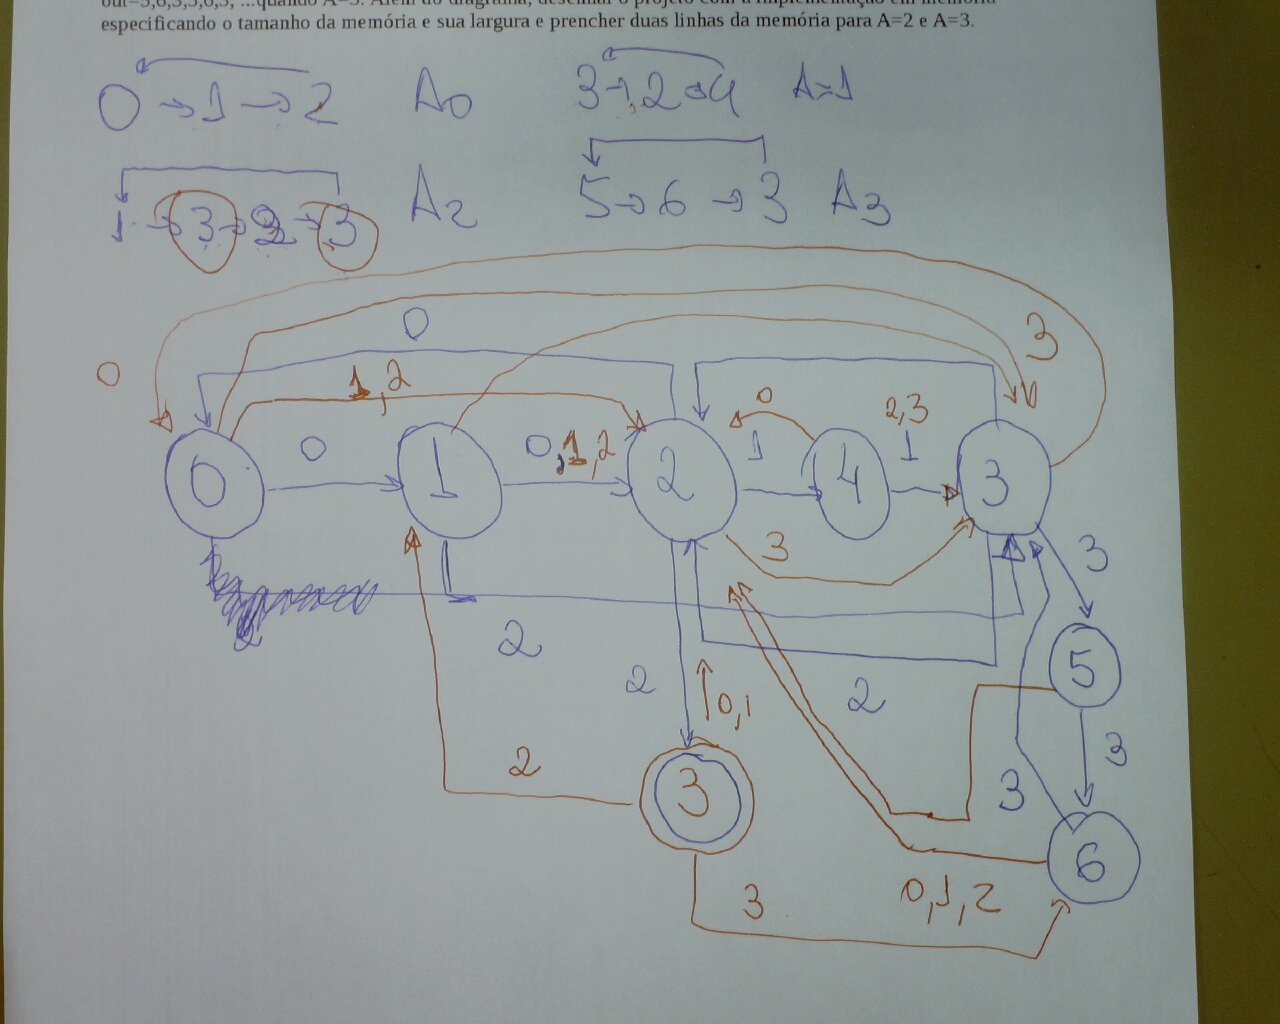 out=5,6,3,5,6,3, ...quando A=3. Além do diagrama, desenhar o projeto com a implementação em memória
especificando o tamanho da memória e sua largura e prencher duas linhas da memória para A=2 e A=3.
0 → 1 → 2 A0 3 → 2 → 4 A=1
1 → 3 → 2 → 3 A2 5 → 6 → 3 A3
0
3
0 1,2 0 2,3
0 0,1,2 1 1
0 1 2 4 3
3 3
2
2 2 2
0,1 5
2 3 3 3
6
3 0,1,2